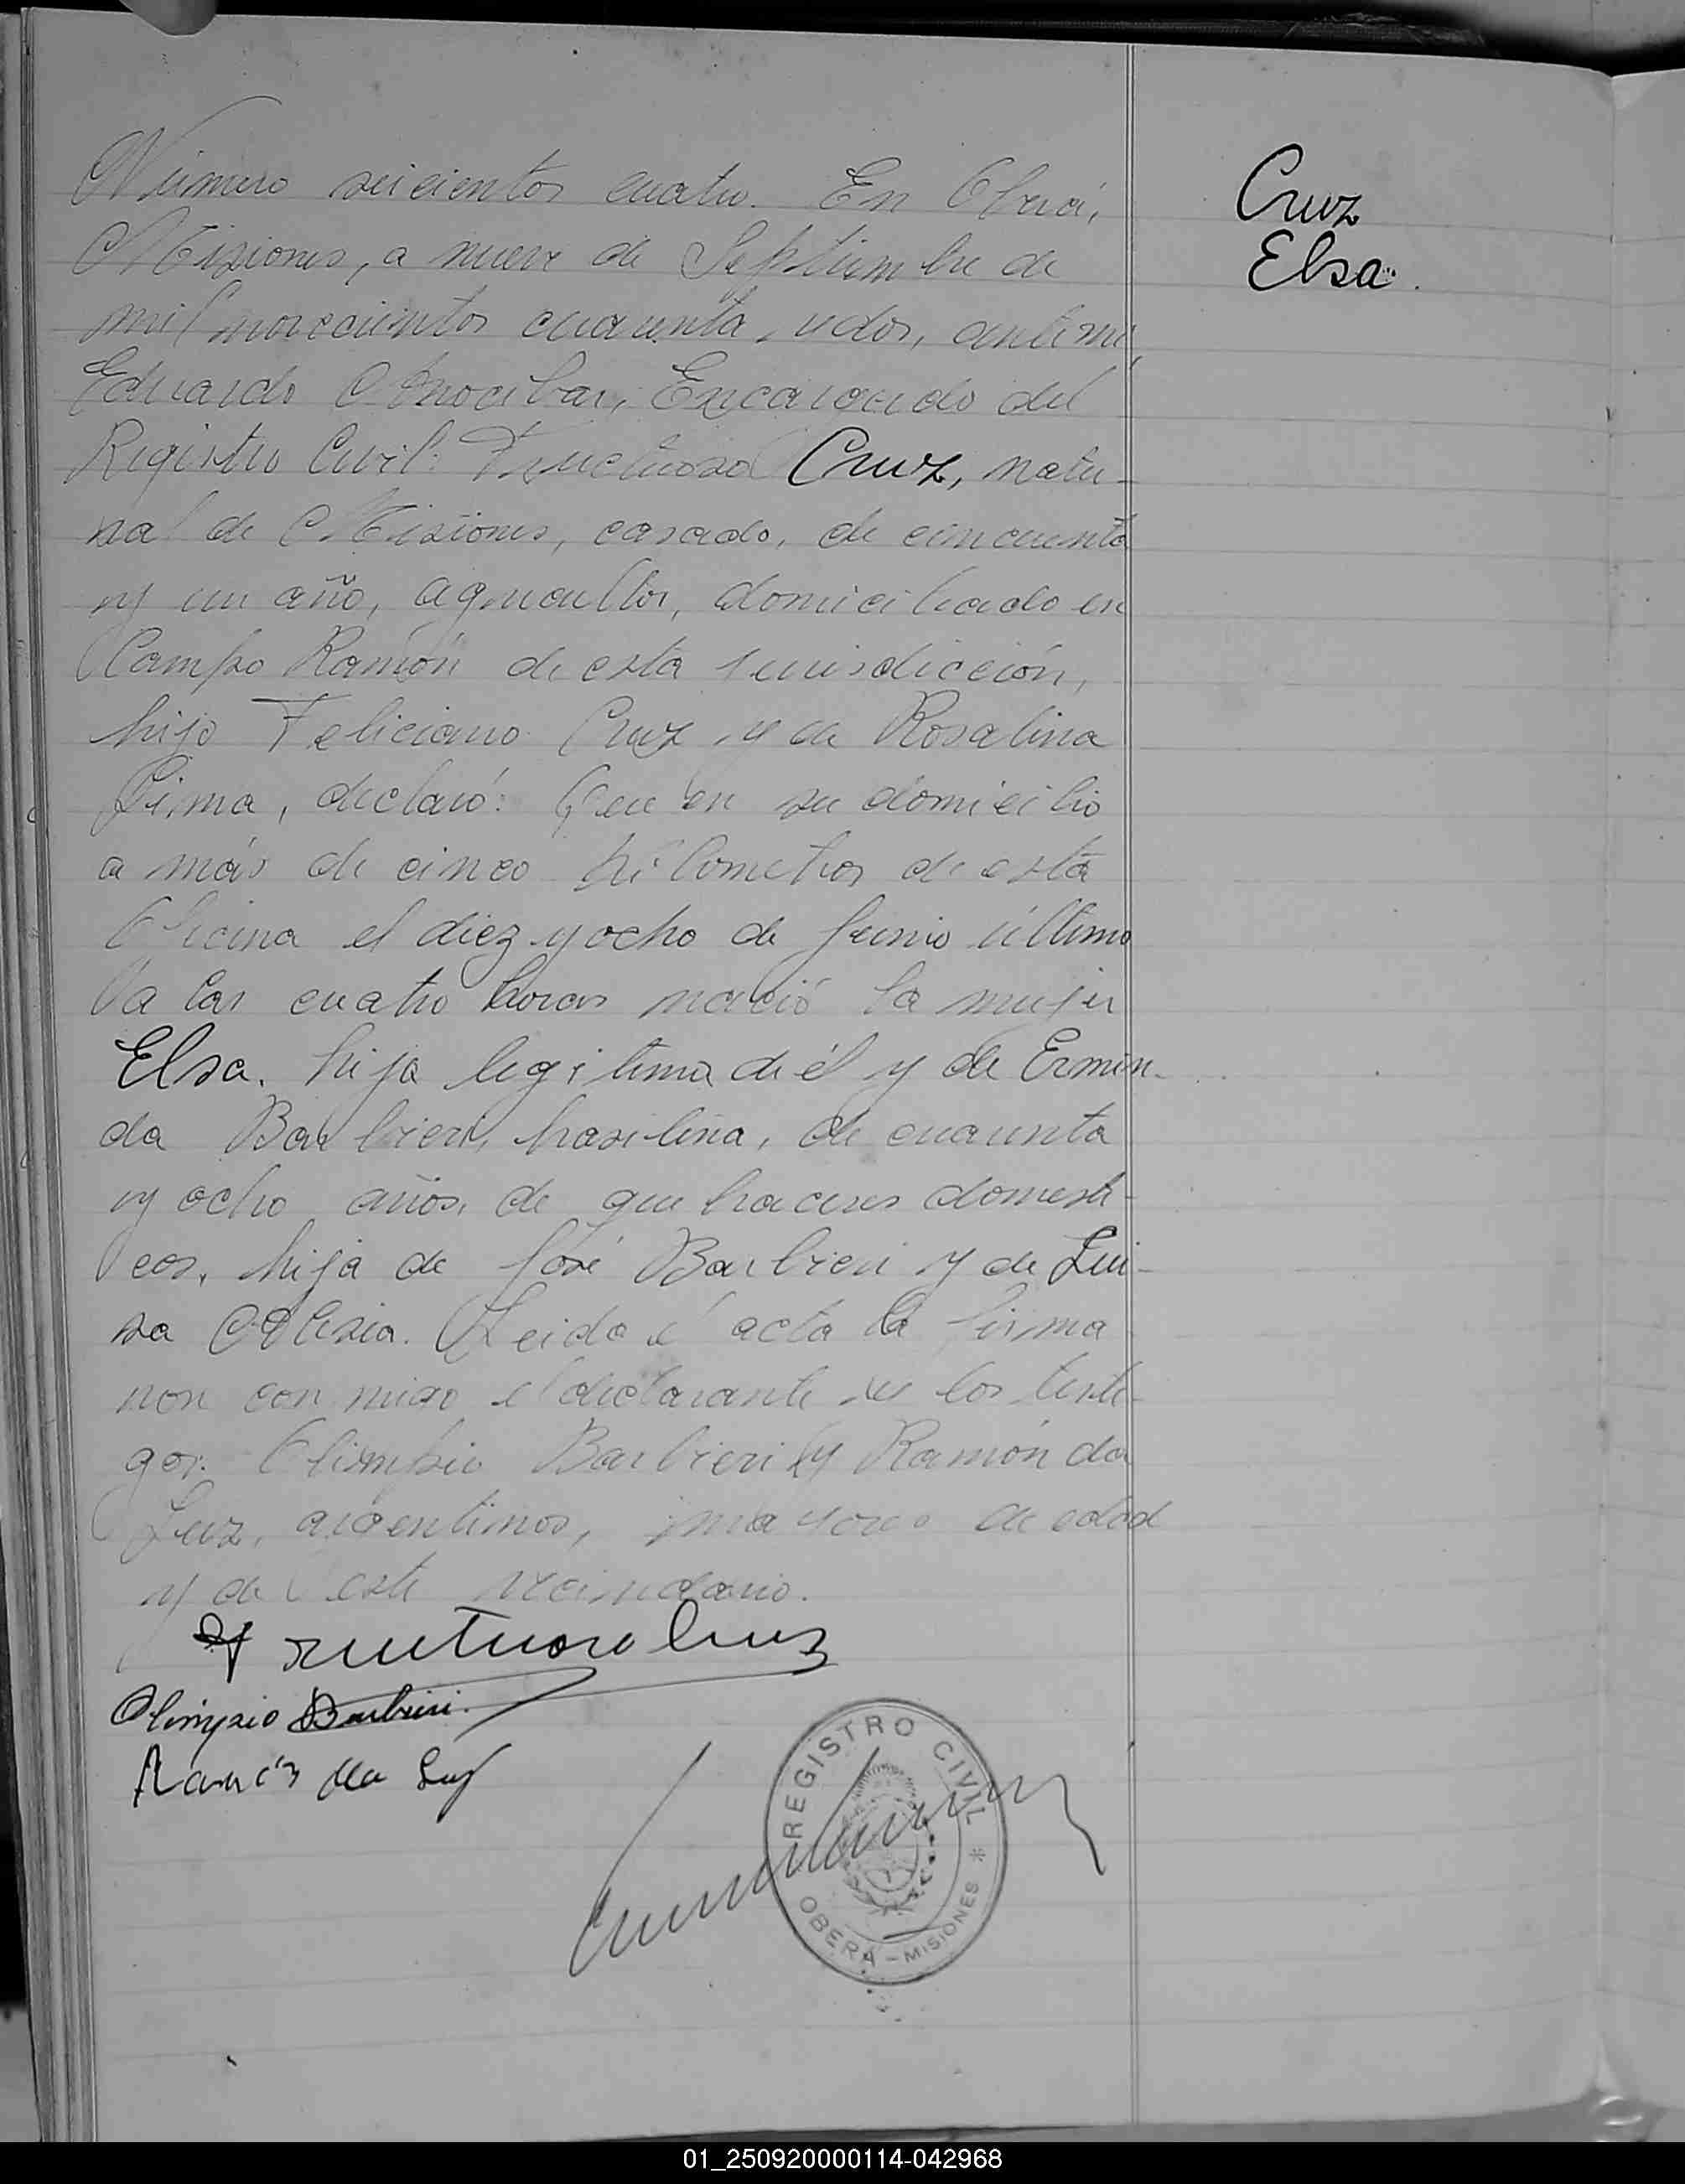 Número seicientos cuatro. En Oberá,
Misiones, a nueve de Septiembre de
mil novecientos cuarenta y dos, ante mi,
Eduardo Encargado del
Registro Civil: Fructuoso Cruz, natu-
ral de Misiones, casado, de cincuenta
y un año, agricultor, domiciliado en
Campo Ramón de esta jurisdicción,
hijo Feliciano Cruz y de Rosalina
Lima, declaró: Que en su domicilio
a más de cinco kilometros de esta
Oficina el diez y ocho de Junio último
a las cuatro horas nació la mujer
Elsa. hija legitima de él y de Ermin-
da Barbieri, brasilera, de cuarenta
y ocho años, de que haceres domesti-
cos, hija de José Barbieri y de Lui-
sa Leida el acta la firma
ron con migo el declarante y los testi-
gos. Olimpio Barbieri y Ramón da
Luz, argentinos, mayores de edad
y de este vecindario.
Fructuoso Cruz
Olimpio Barbieri.
Ramón da Luz
REGISTRO CIVIL
OBERA - MISIONES
Cruz
Elsa.
01_250920000114-042968